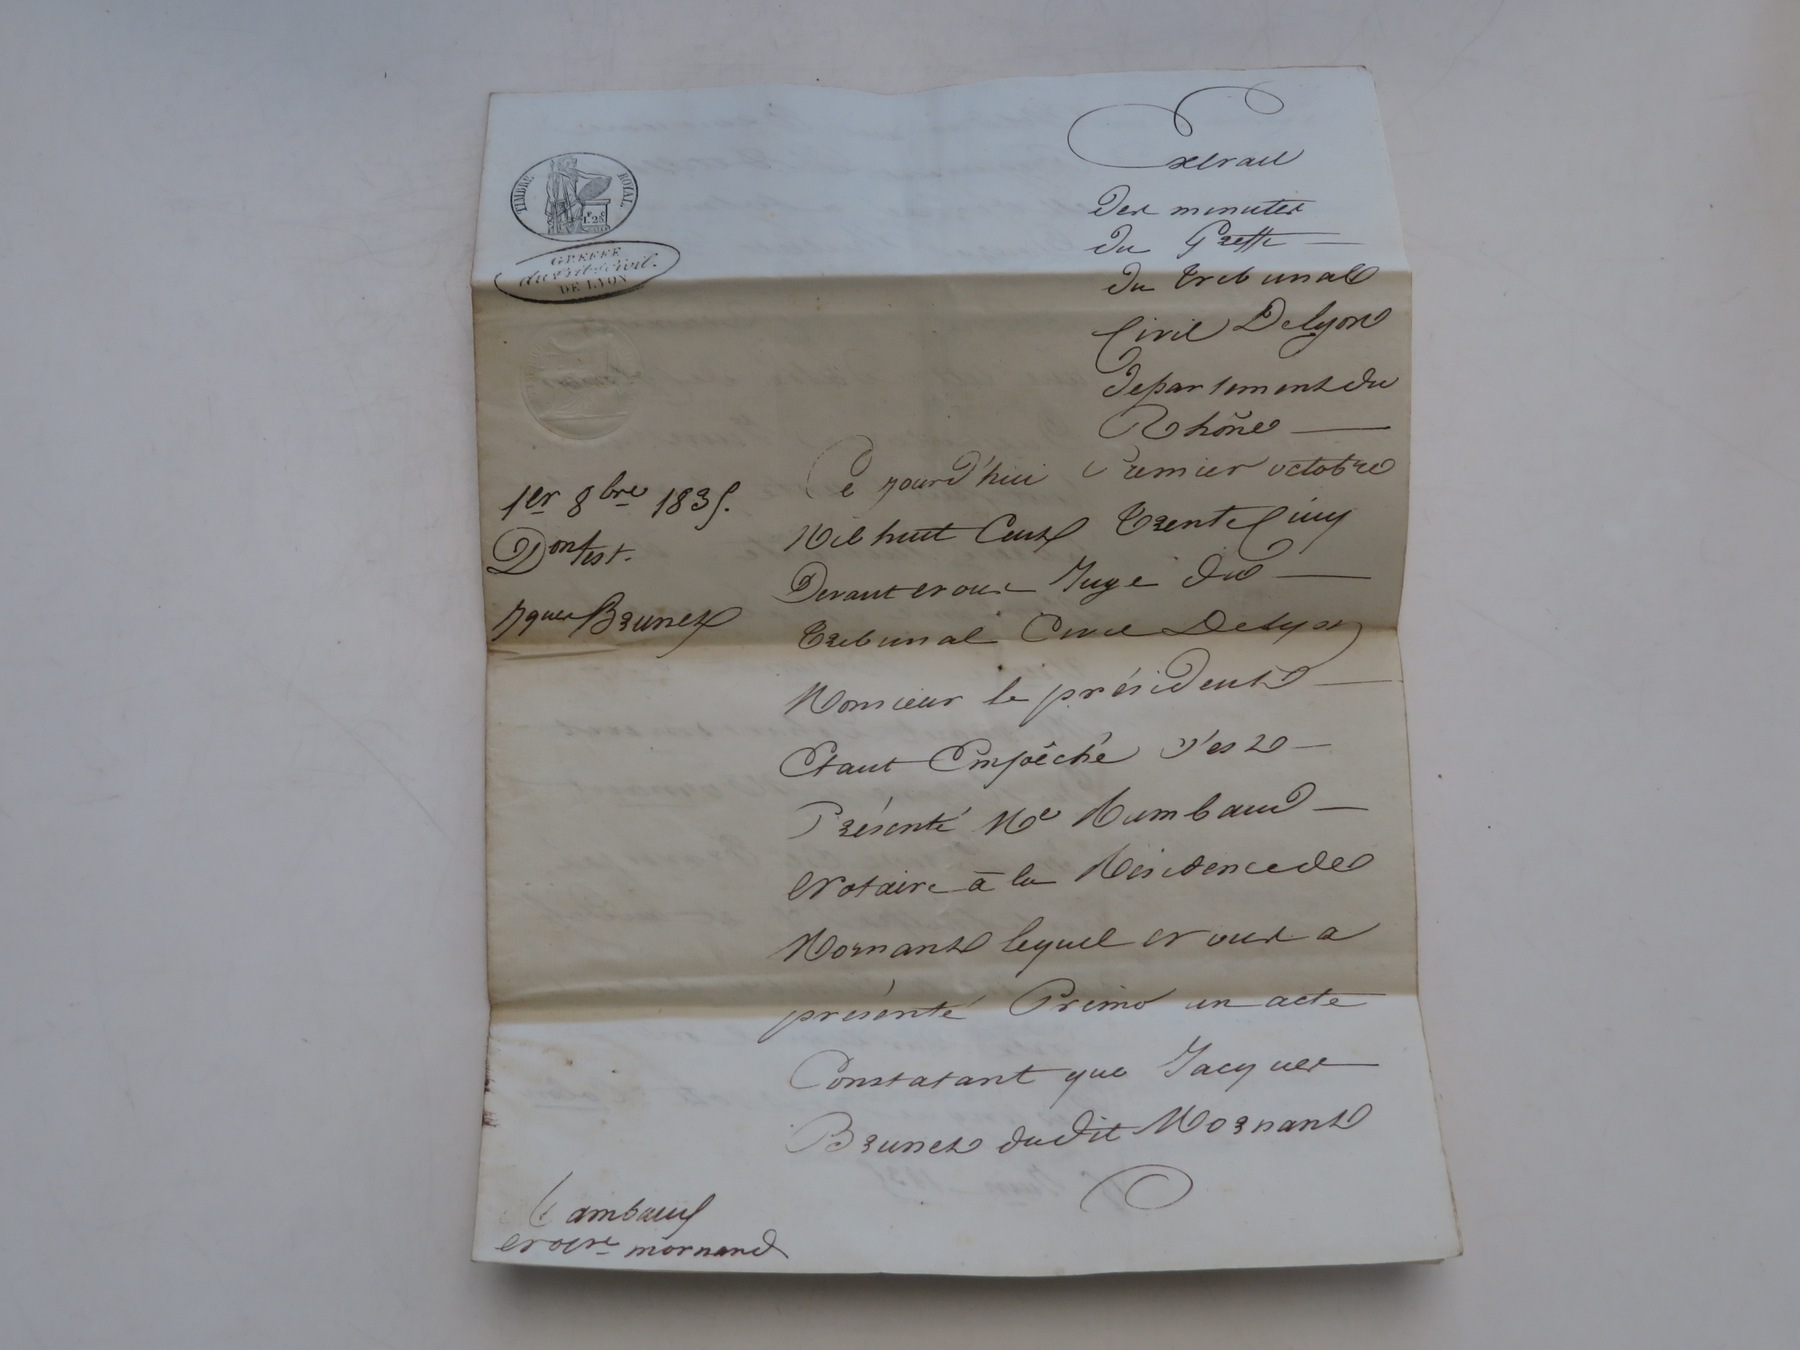 TIMBRE ROYAL
1F. 25C
GREFFE
du trib. civil.
DE LYON
Extrait
Des minutes
du Greffe
du tribunal
Civil De lyon
Departement du
Rhône
1er 8bre 1835.
Don test.
Jques Brunet
Ce jourd'hui Premier octobre
Mil huit Cent Trente Cinq
Devant Nous Juge du
Tribunal Civil De lyon
Monsieur le président
Etant Empêché s'est
Présenté Me Rambaud
Notaire à la Résidence de
Mornant lequel Nous a
présenté Primo un acte
Constatant que Jacques
Brunet dudit Mornant
Rambaud
Notre mornand